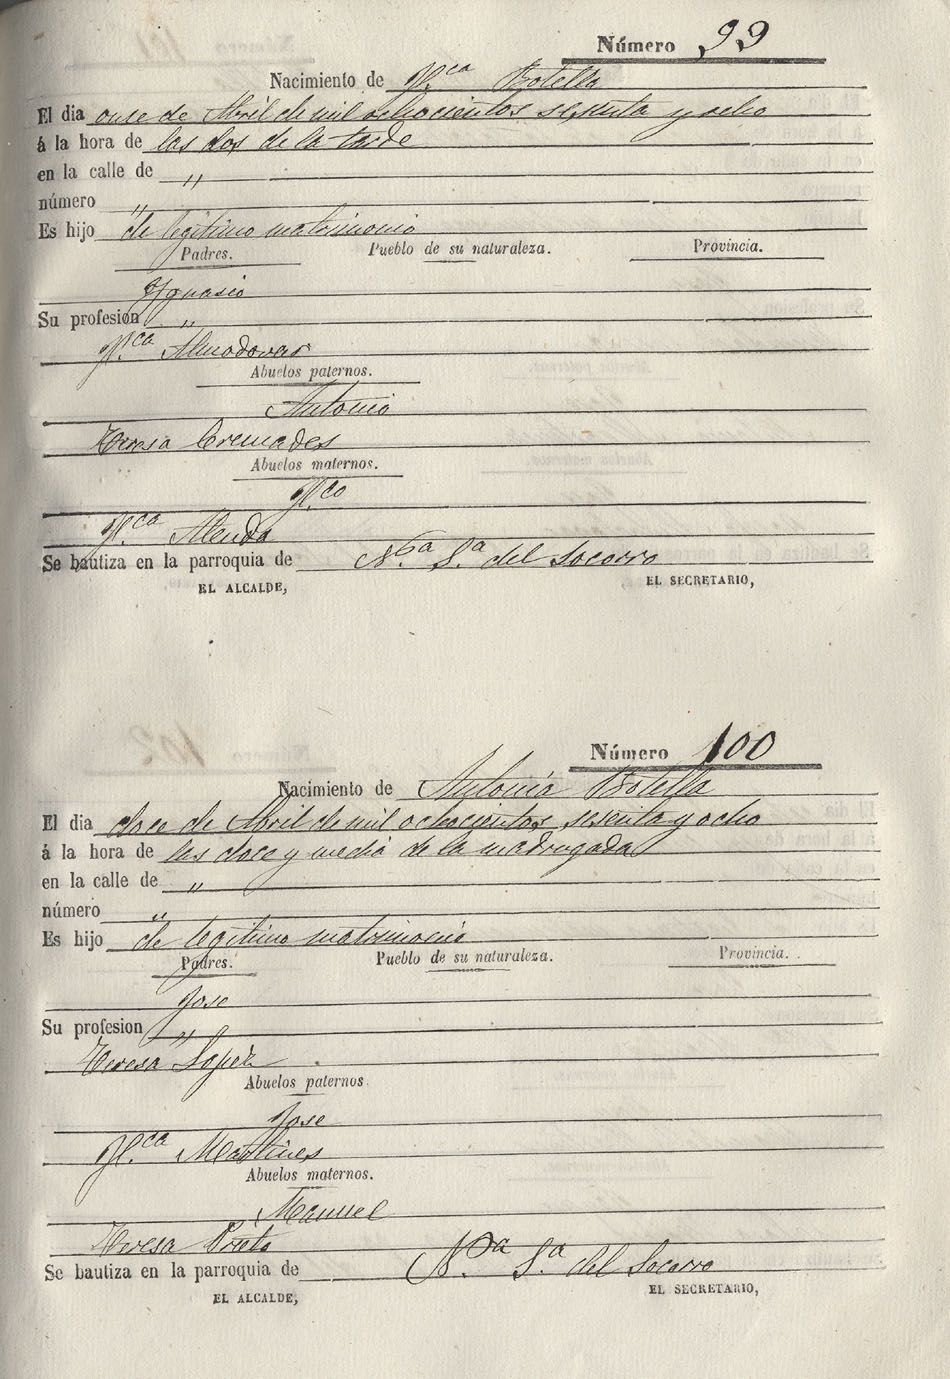 Número 99
Nacimiento de Fr.ca Botella
El dia onse de Abril de mil ochocientos sesenta y ocho
á la hora de las dos de la tarde
en la calle de "
número "
Es hijo de legitimo matrimonio
Padres. Pueblo de su naturaleza. Provincia.
Ygnasio
Su profesión "
Fr.ca Almodovar
Abuelos paternos.
Antonio
Teresa Cremades
Abuelos maternos.
Fr.co
Fr.ca Alenda
Se bautiza en la parroquia de N.tra S.a del Socorro
EL ALCALDE, EL SECRETARIO,
Número 100
Nacimiento de Antonia Botella
El dia doce de Abril de mil ochocientos sesenta y ocho
á la hora de las doce y media de la madrugada
en la calle de "
número "
Es hijo de legitimo matrimonio
Padres. Pueblo de su naturaleza. Provincia.
Jose
Su profesion "
Teresa Lopez
Abuelos paternos.
Jose
Fr.ca Martines
Abuelos maternos.
Manuel
Teresa Prieto
Se bautiza en la parroquia de N.ra S.a del Socorro
EL ALCALDE, EL SECRETARIO,